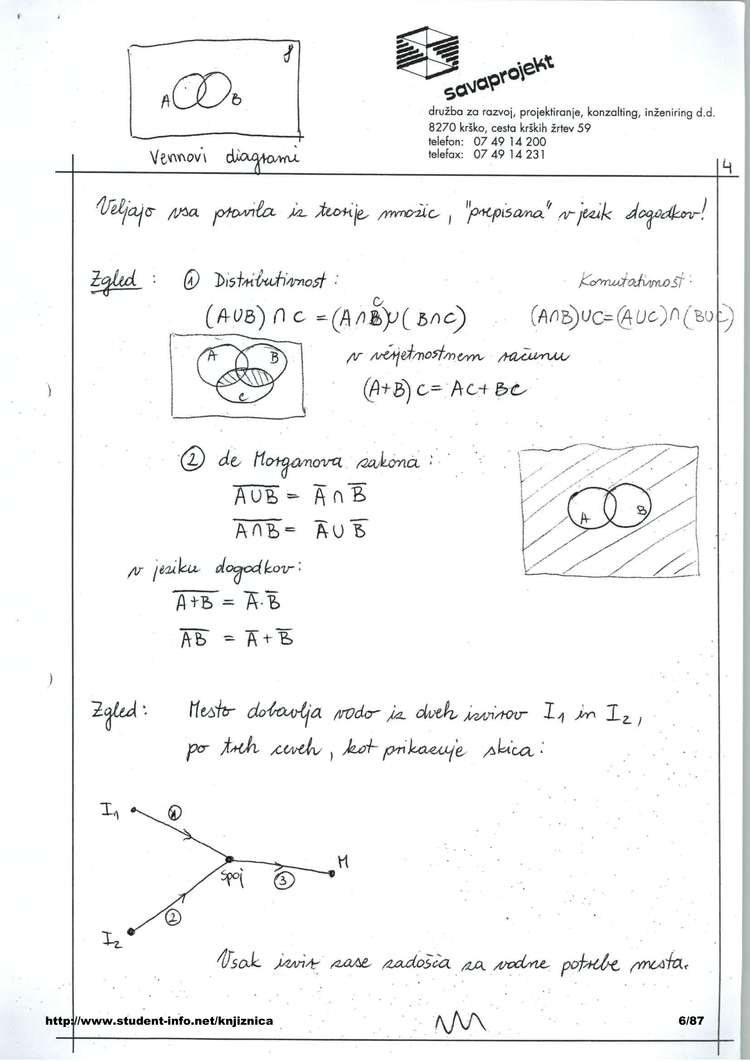 S
A B
Vennovi diagrami
savaprojekt
družba za razvoj, projektiranje, konzalting, inženiring d.d.
8270 krško, cesta krških žrtev 59
telefon: 07 49 14 200
telefax: 07 49 14 231
4
Veljajo vsa pravila iz teorije množic, "prepisana" v jezik dogodkov!
Zgled: ① Distributivnost: Komutativnost:
(A∪B)∩C = (A∩C)∪(B∩C) (A∩B)∪C=(A∪C)∩(B∪C)
A B
C
v verjetnostnem računu
(A+B)C = AC+BC
② de Morganova zakona:
A̅∪̅B̅ = A̅ ∩ B̅
A̅∩̅B̅ = A̅ ∪ B̅
A B
v jeziku dogodkov:
A̅+̅B̅ = A̅·B̅
A̅B̅ = A̅ + B̅
Zgled: Mesto dobavlja vodo iz dveh izvirov I₁ in I₂,
po treh ceveh, kot prikazuje skica:
I₁ ①
M
spoj ③
②
I₂
Vsak izvir zase zadošča za vodne potrebe mesta.
http://www.student-info.net/knjiznica 6/87